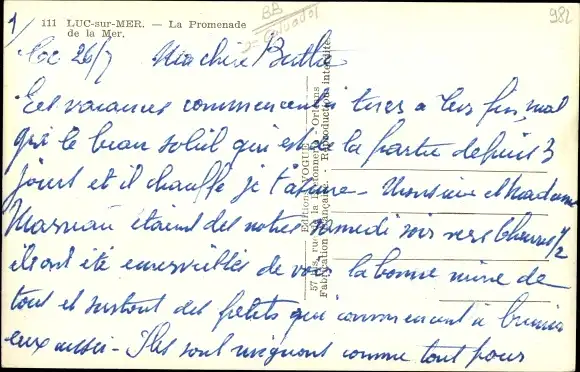 111 LUC-sur-MER. — La Promenade
de la Mer.
982
1/
Luc 26/7 Ma chère Berthe
Les vacances commencent à tirer à leur fin, mal
gré le beau soleil qui est de la partie depuis 3
jours et il chauffe je t'assure - Monsieur et Madame
étaient des notres samedi soir vers 6 heures 1/2
ils ont été de voir la bonne mine de
tous et surtout des petits qui commencent à brunir
eux aussi - Ils sont mignons comme tout pour
Editions VOGUE
57 bis, rue de la - Orléans
Fabrication Française. - Reproduction interdite